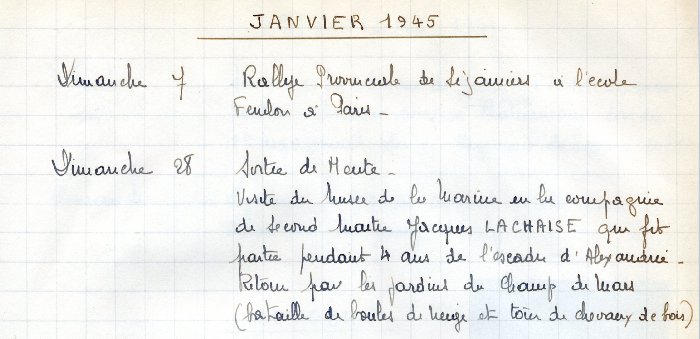 JANVIER 1945
Dimanche 7 Rallye Provinciale de Sizainiers à l'école
Fénelon à Paris -
Dimanche 28 Sortie de Meute -
Visite du Musée de la Marine en la compagnie
de Second Maître Jacques LACHAISE qui fit
partie pendant 4 ans de l'escadre d'Alexandrie -
Retour par les jardins du Champ de Mars
(bataille de boules de neige et tour de chevaux de bois)